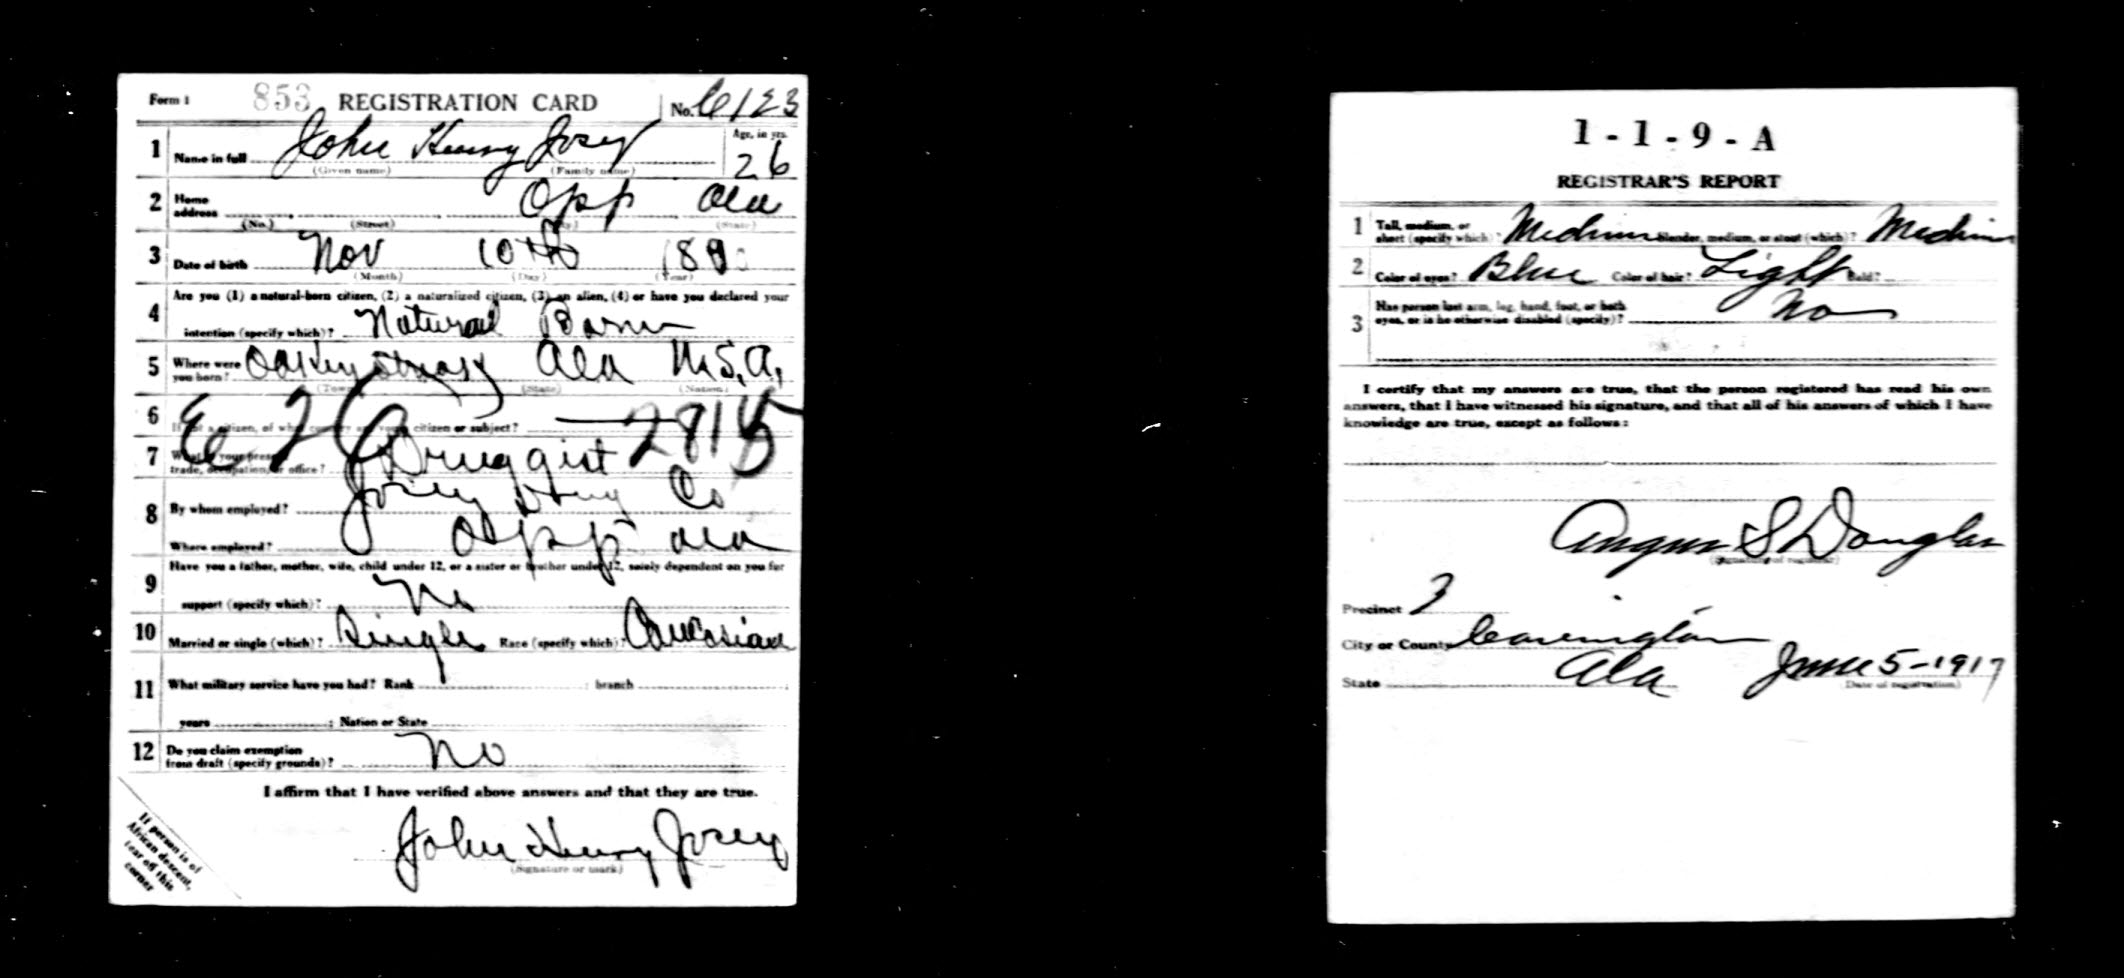 Form 1 853 REGISTRATION CARD No. 123
1 Name in full John Henry Josey Age, in yrs. 26
(Given name) (Family name)
2 Home address Opp Ala
(No.) (Street) (City) (State)
3 Date of birth Nov 10th 1890
(Month) (Day) (Year)
4 Are you (1) a natural-born citizen, (2) a naturalized citizen, (3) an alien, (4) or have you declared your
intention (specify which)? Natural Born
5 Where were you born? Ala U.S.A.
(Town) (State) (Nation)
6 If not a citizen, of what country are you a citizen or subject? 2815
7 What is your present trade, occupation, or office? Druggist
8 By whom employed? Josey Drug Co
Where employed? Opp Ala
9 Have you a father, mother, wife, child under 12, or a sister or brother under 12, solely dependent on you for
support (specify which)? No
10 Married or single (which)? Single Race (specify which)? Caucasian
11 What military service have you had? Rank ; branch
years ; Nation or State
12 Do you claim exemption from draft (specify grounds)? No
I affirm that I have verified above answers and that they are true.
John Henry Josey
(Signature or mark)
If person is of
African descent,
tear off this
corner
1-1-9-A
REGISTRAR'S REPORT
1 Tall, medium, or short (specify which)? Medium Slender, medium, or stout (which)? Medium
2 Color of eyes? Blue Color of hair? Light Bald?
3 Has person lost arm, leg, hand, foot, or both
eyes, or is he otherwise disabled (specify)? No
I certify that my answers are true, that the person registered has read his own
answers, that I have witnessed his signature, and that all of his answers of which I have
knowledge are true, except as follows:
Angus S Douglas
(Signature of registrar)
Precinct 3
City or County Covington
State Ala June 5-1917
(Date of registration)